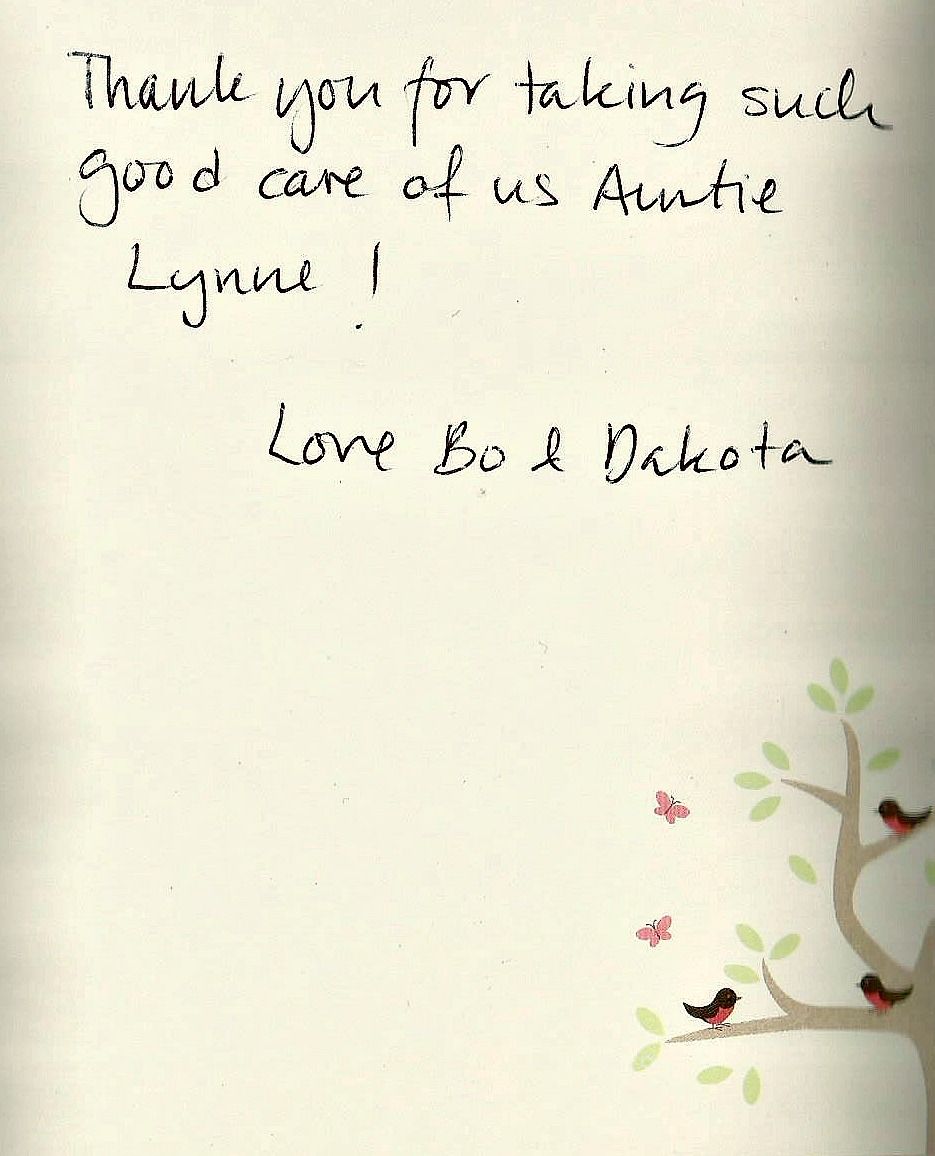 Thank you for taking such
good care of us Auntie
Lynne !
Love Bo & Dakota